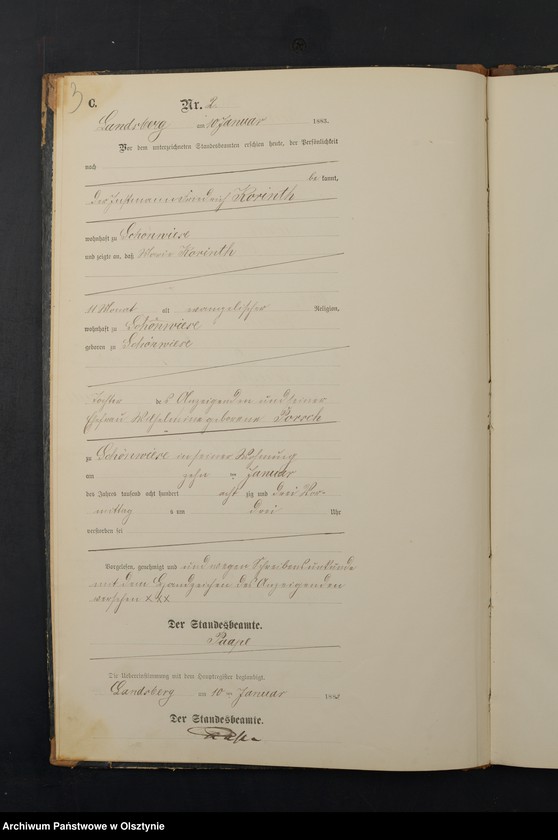 3
C.
Nr. 2
Landsberg am 10 Januar 1883.
Vor dem unterzeichneten Standesbeamten erschien heute, der Persönlichkeit
nach
be kannt,
der Instmann Friedrich Korinth
wohnhaft zu Schönwiese
und zeigte an, daß Marie Korinth
11 Monat alt evangelischer Religion,
wohnhaft zu Schönwiese
geboren zu Schönwiese
Tochter des Anzeigenden und seiner
Ehefrau Wilhelmine geborene Porsch
zu Schönwiese in seiner Wohnung
am zehn ten Januar
des Jahres tausend acht hundert acht zig und drei Vor-
mittag s um drei Uhr
verstorben sei
Vorgelesen, genehmigt und und wegen Schreibensunkunde
mit dem Handzeichen des Anzeigenden
versehen XXX
Der Standesbeamte.
Die Uebereinstimmung mit dem Hauptregister beglaubigt.
Landsberg am 10 ten Januar 1883
Der Standesbeamte.
Archiwum Państwowe w Olsztynie